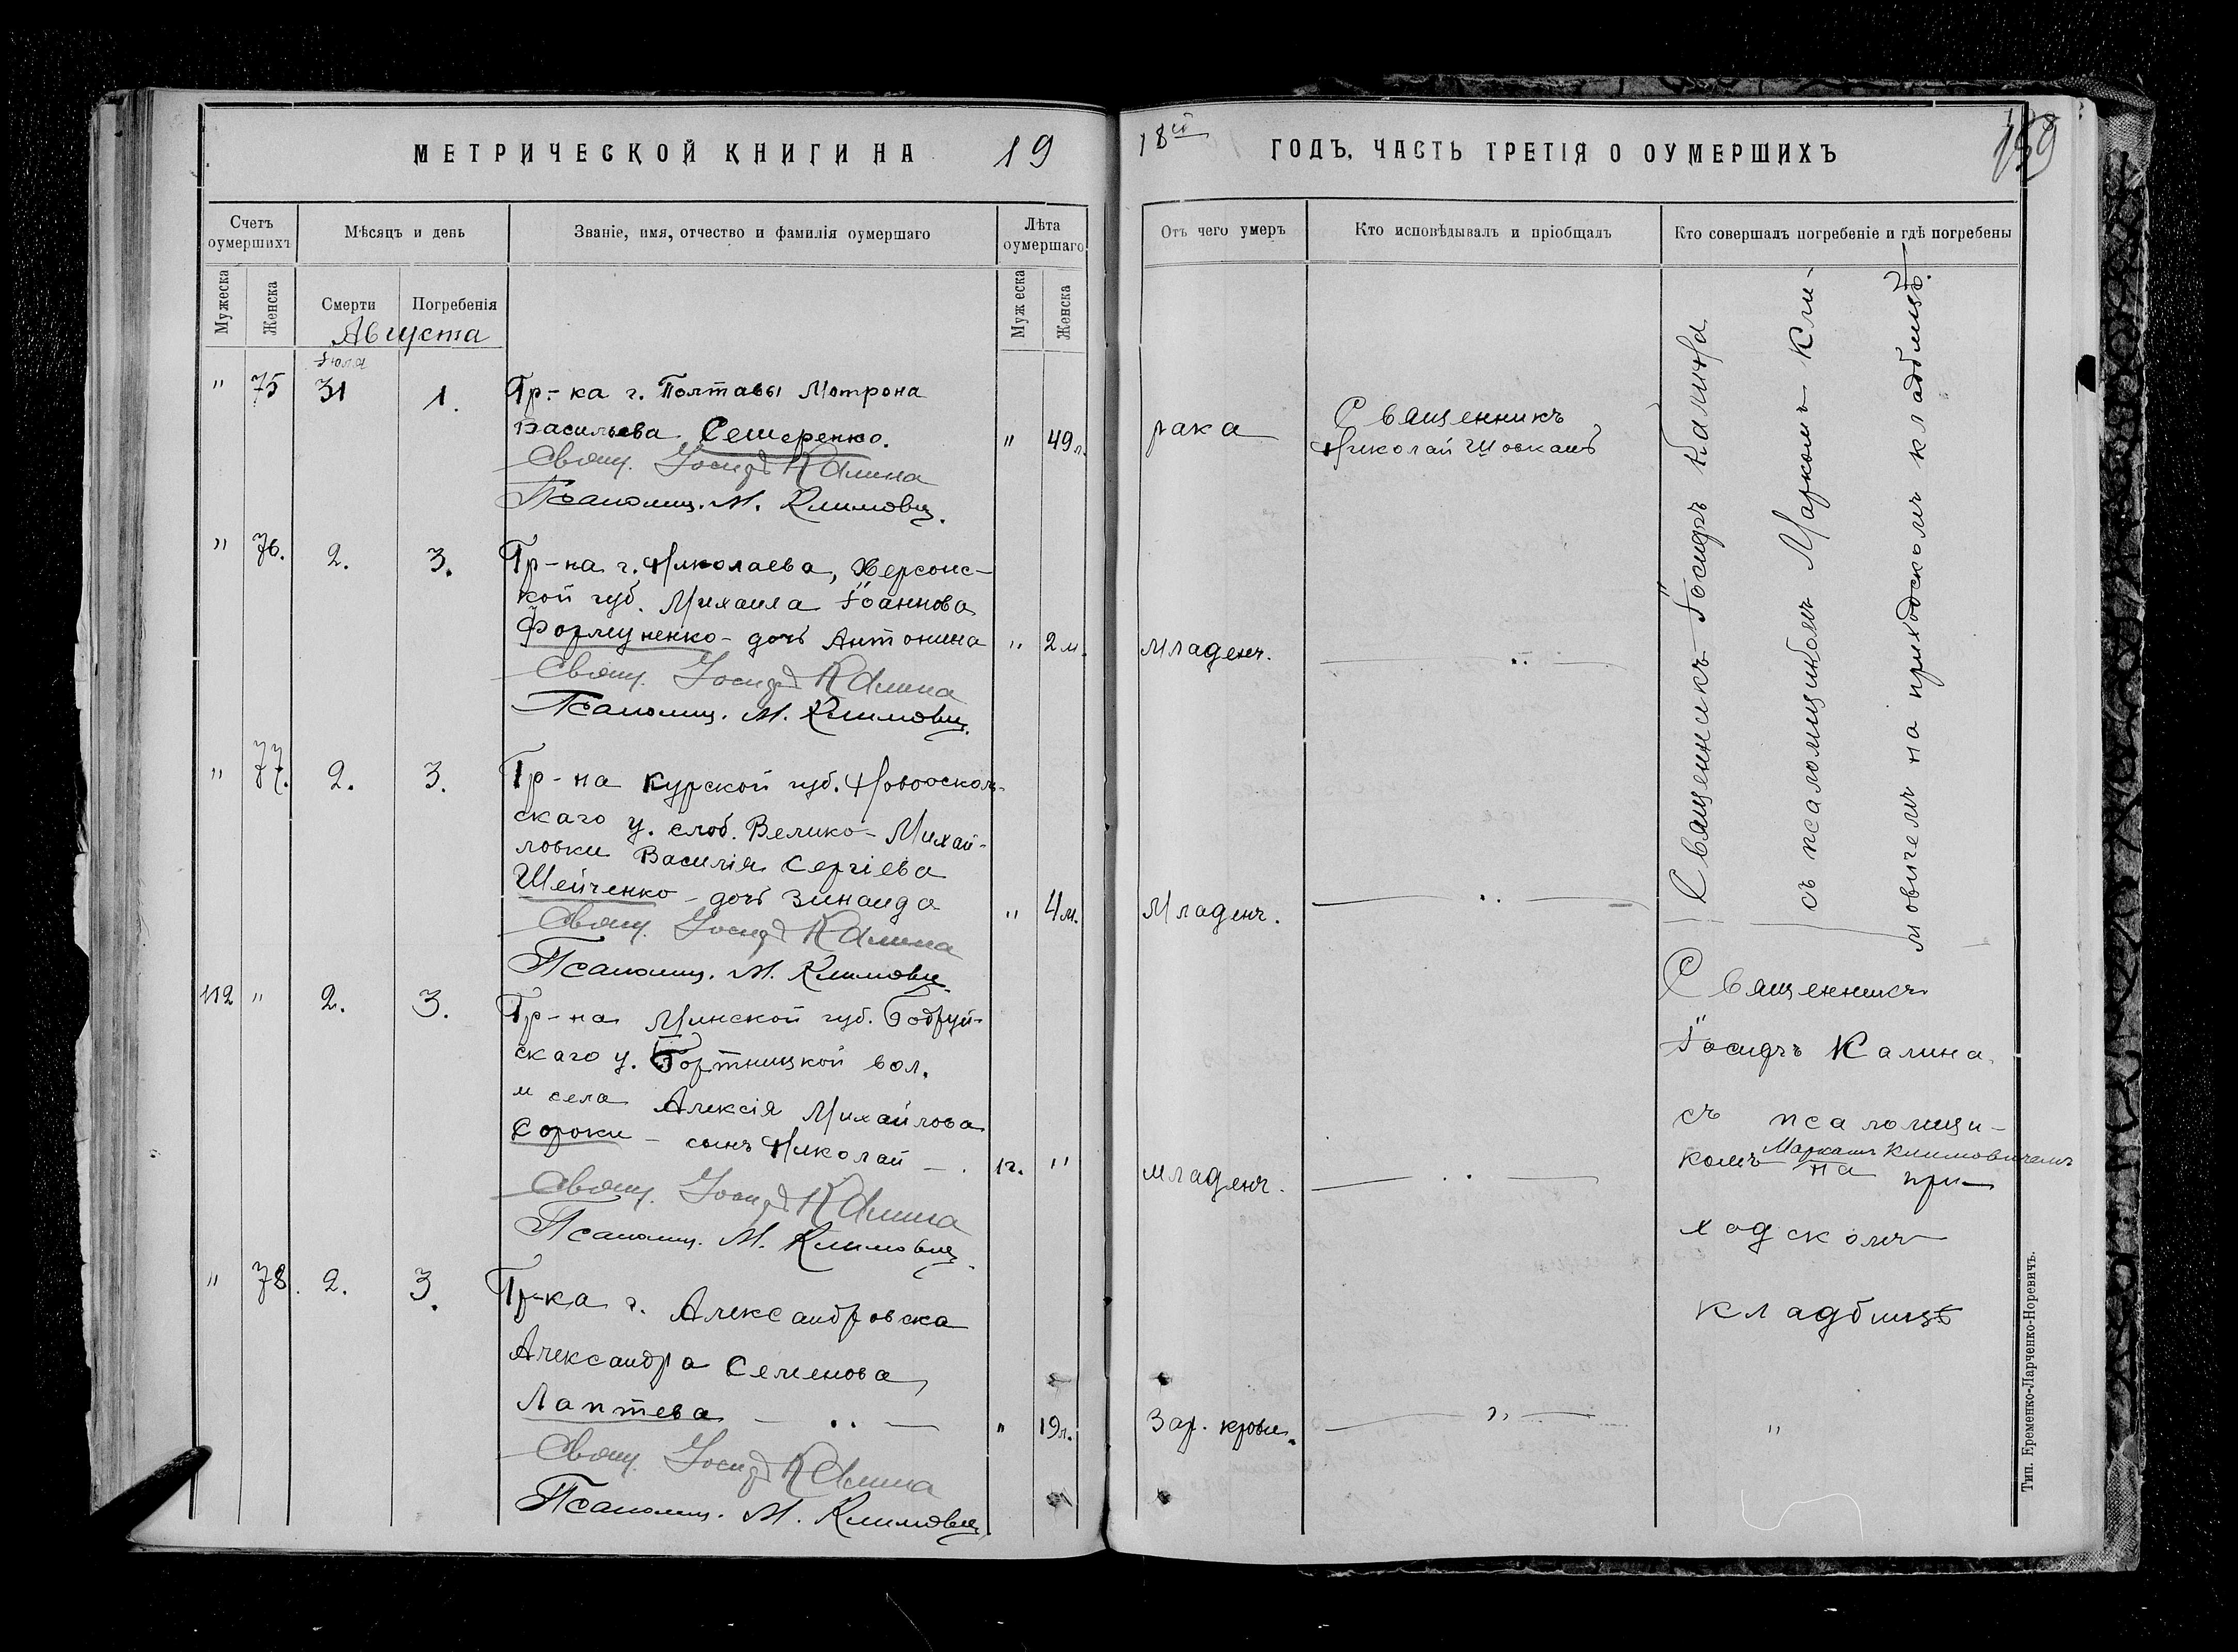 МЕТРИЧЕСКОЙ КНИГИ НА 19
Счетъ оумершихъ
Мѣсяцъ и день
Званіе, имя, отчество и фамилія оумершаго
Лѣта оумершаго
Мужеска
Женска
Смерти
Погребенія
Мужеска
Женска
Августа
Іюля
" 75 31 1. Гр-ка г. Полтавы Мотрона
Васильева Семеренко. " 49 л.
Свящ. Іосифъ Калина
Псаломщ. М. Климович.
" 76. 2. 3. Гр-на г. Николаева, Херсонс-
кой губ. Михаила Іоаннова
Формуненко - дочь Антонина " 2 м.
Свящ. Іосифъ Калина
Псаломщ. М. Климович.
" 77. 2. 3. Гр-на Курской губ. Новооскол-
скаго у. слоб. Велико-Михай-
ловки Василія Сергіева
Шейченко - дочь Зинаида " 4 м.
Свящ. Іосифъ Калина
Псаломщ. М. Климович.
112 " 2. 3. Гр-на Минской губ. Бобруй-
скаго у. вол.
и села Алексія Михайлова
Сороки - сынъ Николай - . 1 г. "
Свящ. Іосифъ Калина
Псаломщ. М. Климович.
" 78. 2. 3. Гр-ка г. Александровска
Александра Семенова
Лаптева " 19 л.
Свящ. Іосифъ Калина
Псаломщ. М. Климович
18й ГОДЪ, ЧАСТЬ ТРЕТІЯ О ОУМЕРШИХЪ
159
Отъ чего умеръ
Кто исповѣдывалъ и пріобщалъ
Кто совершалъ погребеніе и гдѣ погребены
рака
Священникъ
Николай
младенч.
младенч.
младенч.
Зар. крови.
Священникъ Іосифъ Калина
съ псаломщикомъ Маркомъ Кли-
мовичемъ на приходскомъ кладбищѣ.
Священникъ
Іосифъ Калина
съ псаломщи-
комъ Маркомъ Климовичемъ на при-
ходскомъ
кладбищѣ
"
Тип. Еременко-Ларченко-Норевичъ.